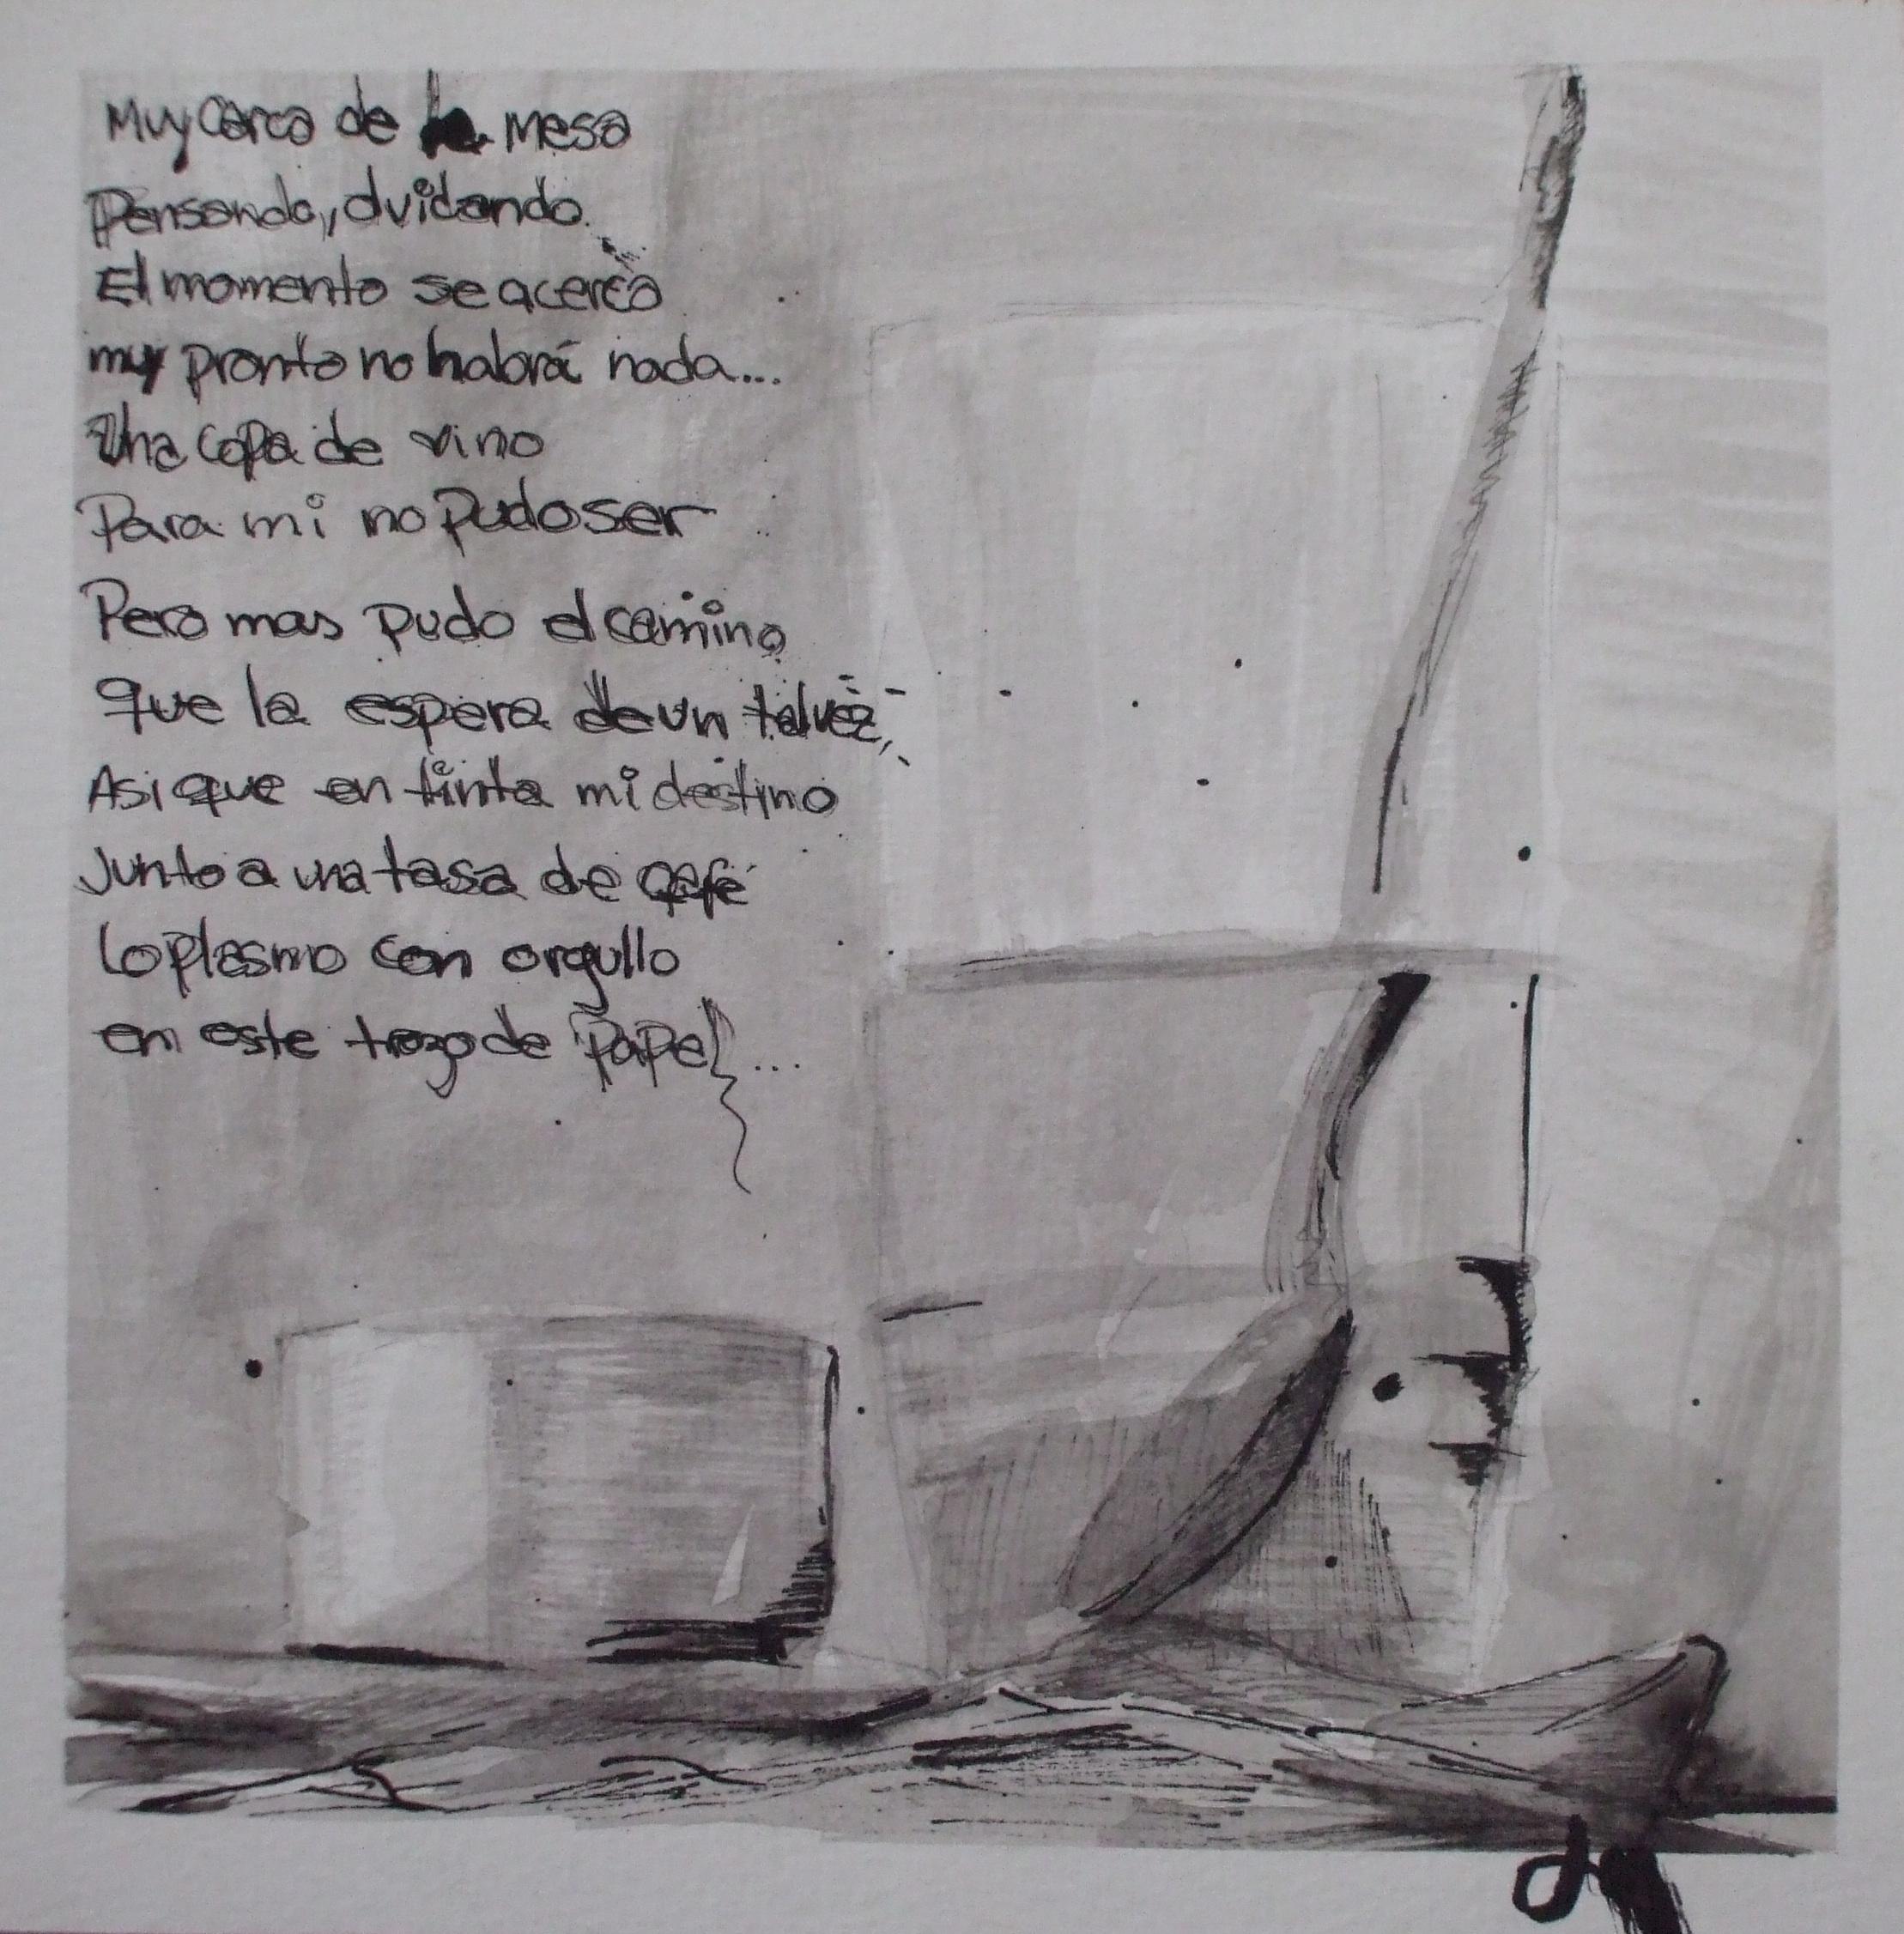 Muy cerca de la mesa
Pensando, dudando.
El momento se acercó
muy pronto no habrá nada...
Una copa de vino
Para mi no pudo ser
Pero mas pudo el camino
que la espera de un talvéz,
Asi que en tinta mi destino
Junto a una tasa de café
lo plasmo con orgullo
en este trozo de papel...